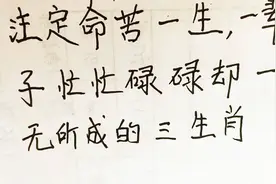 注定命苦一生，一辈
子忙忙碌碌却一
无所成的三生肖